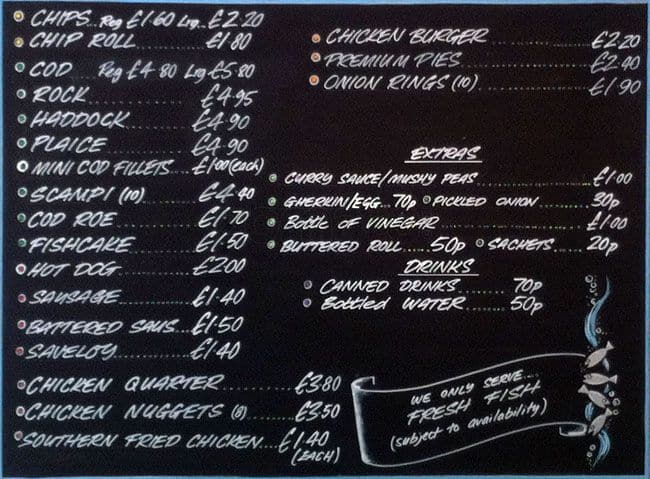 CHIPS... Reg £1·60 Lrg... £2·20
CHIP ROLL............£1·80
COD Reg £4·80 Lrg £5·80
ROCK............£4·95
HADDOCK............£4·90
PLAICE............£4·90
MINI COD FILLETS... £1·00 (each)
SCAMPI (10)............£4·40
COD ROE............£1·70
FISHCAKE............£1·50
HOT DOG............£2·00
SAUSAGE............£1·40
BATTERED SAUS...£1·50
SAVELOY............£1·40
CHICKEN QUARTER............£3·80
CHICKEN NUGGETS (8)......£3·50
SOUTHERN FRIED CHICKEN....£1·40
(EACH)
CHICKEN BURGER............£2·20
PREMIUM PIES............£2·40
ONION RINGS (10)............£1·90
EXTRAS
CURRY SAUCE/MUSHY PEAS............£1·00
GHERKIN/EGG... 70p PICKLED ONION......30p
Bottle of VINEGAR............£1·00
BUTTERED ROLL...50p SACHETS......20p
DRINKS
CANNED DRINKS......70p
Bottled WATER......50p
WE ONLY SERVE....
FRESH FISH
(subject to availability)